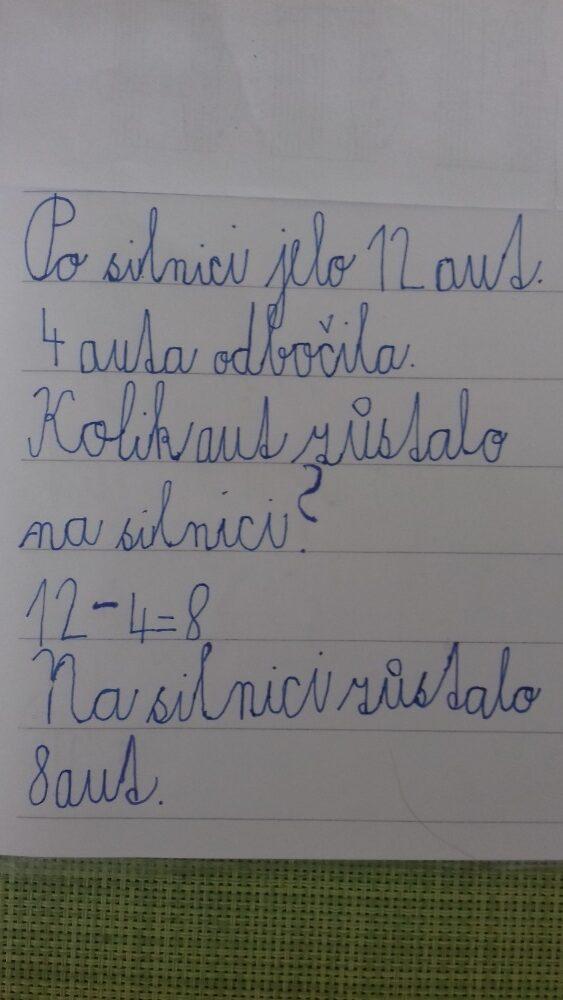 Po silnici jelo 12 aut.
4 auta odbočila.
Kolik aut zůstalo
na silnici?
12-4=8
Na silnici zůstalo
8 aut.